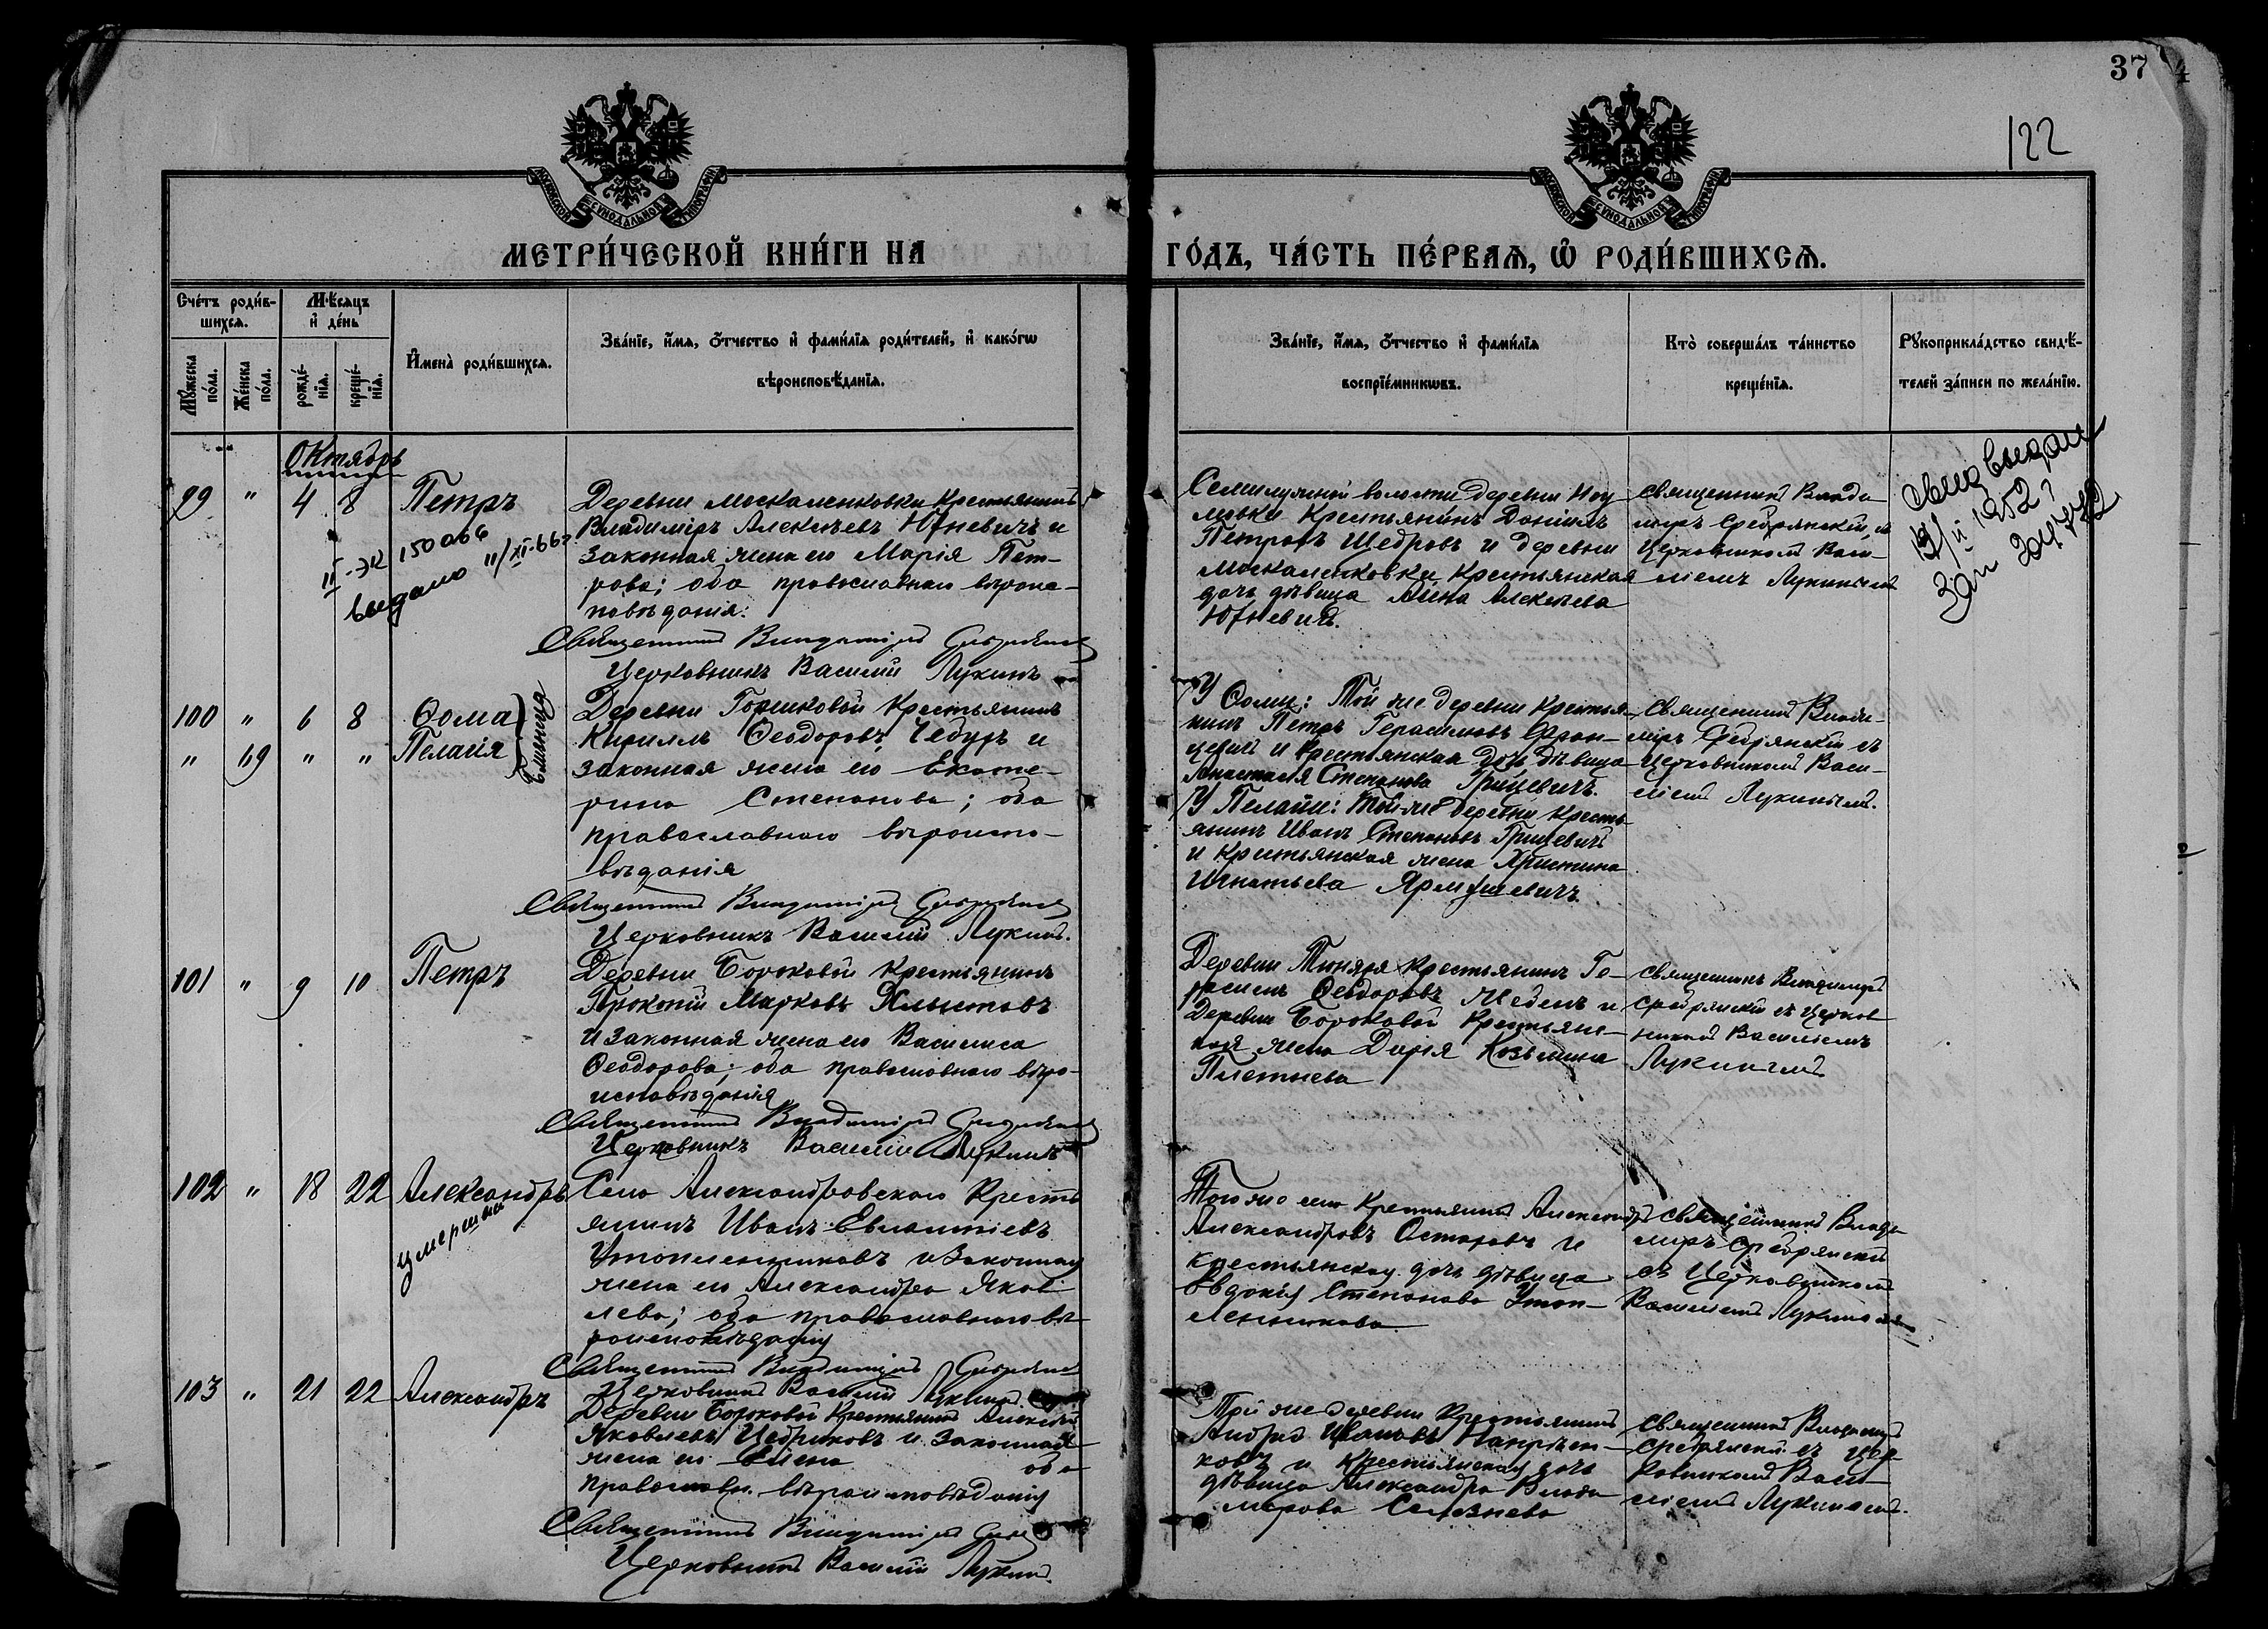 37
122
МОСКОВСКОЙ СѴНОДАЛЬНОЙ ТИПОГРАФІИ
МОСКОВСКОЙ СѴНОДАЛЬНОЙ ТИПОГРАФІИ
МЕТРИ́ЧЕСКОЙ КНИ́ГИ НА
ГО́ДЪ, ЧА́СТЬ ПЕ́РВАѦ, Ѡ҆ РОДИ́ВШИХСѦ.
Сче́тъ роди́в-
шихсѧ.
Мѣ́сѧцъ
и҆ де́нь
Мꙋ́жеска по́ла.
Же́нска по́ла.
рожде́-
нїѧ.
креще́-
нїѧ.
И҆мена̀ роди́вшихсѧ.
Зва́нїе, и҆́мѧ, ѻ҆́тчество и҆ фами́лїѧ роди́телей, и҆ како́гѡ
вѣроисповѣ́данїѧ.
Зва́нїе, и҆́мѧ, ѻ҆́тчество и҆ фами́лїѧ
воспрїе́мникѡвъ.
Кто̀ соверша́лъ та́инство
креще́нїѧ.
Рꙋкоприкла́дство свидѣ́-
телей за́писи по жела́нїю.
Октябрь
99 " 4 8 Петръ
150066
выдано 11/XI-66г
Деревни Москаленковки Крестьянинъ
Владиміръ Алексѣевъ Юхневичъ и
законная жена его Марія Пет-
рова; оба православнаго вѣроис-
повѣданія:
Священникъ Владиміръ Сребрянскій
Церковникъ Василій Лукинъ
Семилужной волости деревни
Крестьянинъ Даніилъ
Петровъ Щедровъ и деревни
Москаленковки Крестьянская
дочь дѣвица Анна Алексѣева
Юхневичъ.
Священникъ Влади-
міръ Сребрянскій съ
Церковникомъ Васи-
ліемъ Лукинымъ
выдан
1952 г
100 " 6 8 Ѳома
" 69 " " Пелагія
близнецы
Деревни Горшковой Крестьянинъ
Кириллъ Ѳеодоровъ Чебуръ и
законная жена его Екате-
рина Степанова; оба
православнаго вѣроиспо-
вѣданія
Священникъ Владиміръ Сребрянскій
Церковникъ Василій Лукинъ.
У Ѳомы: Той же деревни Крестья-
нинъ Петръ Герасимовъ
и крестьянская дочь дѣвица
Анастасія Степанова Грицевичъ.
У Пелагіи: Той-же деревни Кресть-
янинъ Иванъ Степановъ Грицевичъ
и Крестьянская жена Христина
Игнатьева Ярмушевичъ
Священникъ Влади-
міръ Сребрянскій съ
Церковникомъ Васи-
ліемъ Лукинымъ.
101 " 9 10 Петръ
Деревни Бороковой Крестьянинъ
Прокопій Марковъ Хлыстовъ
и законная жена его Василиса
Ѳеодорова; оба православнаго вѣро-
исповѣданія
Священникъ Владиміръ Сребрянскій
Церковникъ Василій Лукинъ
Деревни Крестьянинъ Ге-
расимъ Ѳеодоровъ и
Деревни Бороковой Крестьянс-
кая жена Дарія Козьмина
Плетнева
Священникъ Владиміръ
Сребрянскій съ Церков-
никомъ Василіемъ
Лукинымъ
102 " 18 22 Александръ
умершій
Села Александровскаго Кресть-
янинъ Иванъ Евлампіевъ
Утопленниковъ и законная
жена его Александра Яков-
лева; оба православнаго вѣ-
роисповѣданія
Священникъ Владиміръ Сребрянскій
Церковникъ Василій Лукинъ
Того же села Крестьянинъ Александръ
Александровъ Остаровъ и
крестьянская дочь дѣвица
Евдокія Степанова Утоп-
ленникова
Священникъ Влади-
міръ Сребрянскій
съ Церковникомъ
Василіемъ Лукинымъ
103 " 21 22 Александръ
Деревни Бороковой Крестьянинъ Алексѣй
Яковлевъ Цебриковъ и законная
жена его Елена оба
православн. вѣроисповѣданія
Священникъ Владиміръ
Церковникъ Василій Лукинъ.
Той же деревни Крестьянинъ
Андрей Ивановъ
и Крестьянская дочь
дѣвица Александра Влади-
мірова Селезнева
Священникъ Владиміръ
Сребрянскій съ Цер-
ковникомъ Васи-
ліемъ Лукинымъ.